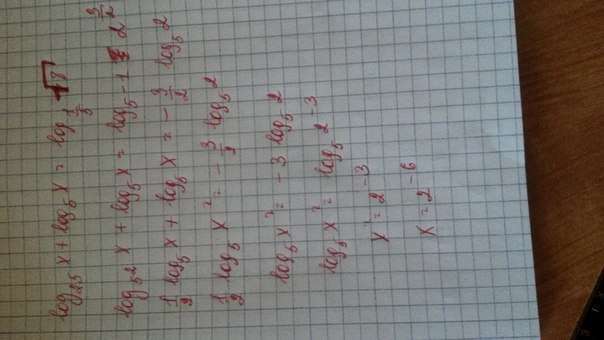 log₂₅ x + log₅ x = log_{1/5} √8
log_{5²} x + log₅ x = log_{5^{-1}} 2^{3/2}
1/2 log₅ x + log₅ x = - 3/2 log₅ 2
1/2 log₅ x² = - 3/2 log₅ 2
log₅ x² = - 3 log₅ 2
log₅ x² = log₅ 2⁻³
x² = 2⁻³
x = 2⁻⁶